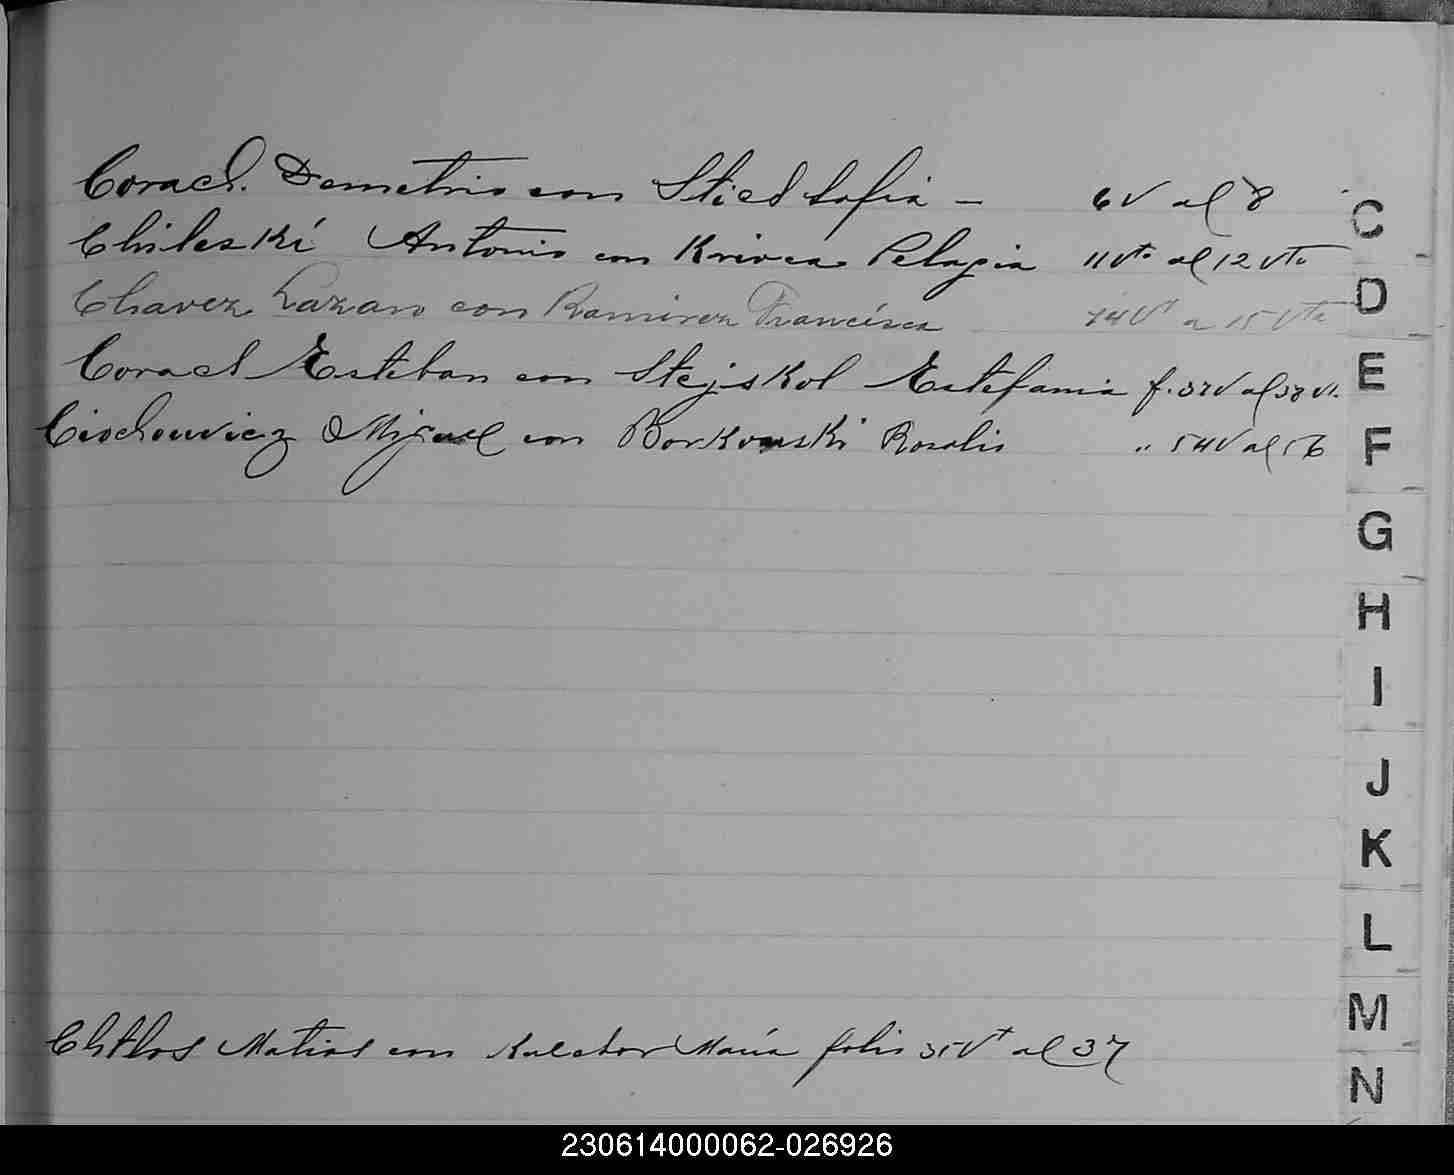 Corach. Demetrio con Stied Sofia - 6 V al 8
Chileski Antonio con Krivca Pelagia 11 Vto al 12 Vto
Chavez Lazaro con Ramirez Francisca 14 Vt a 15 Vta
Corach Esteban con Stejskol Estefania f. 37V al 38 Vt.
Ciochowicz Miguel con Borkowski Rosalia " 54V al 56
Matias con María folio 35 Vt al 37
C
D
E
F
G
H
I
J
K
L
M
N
230614000062-026926